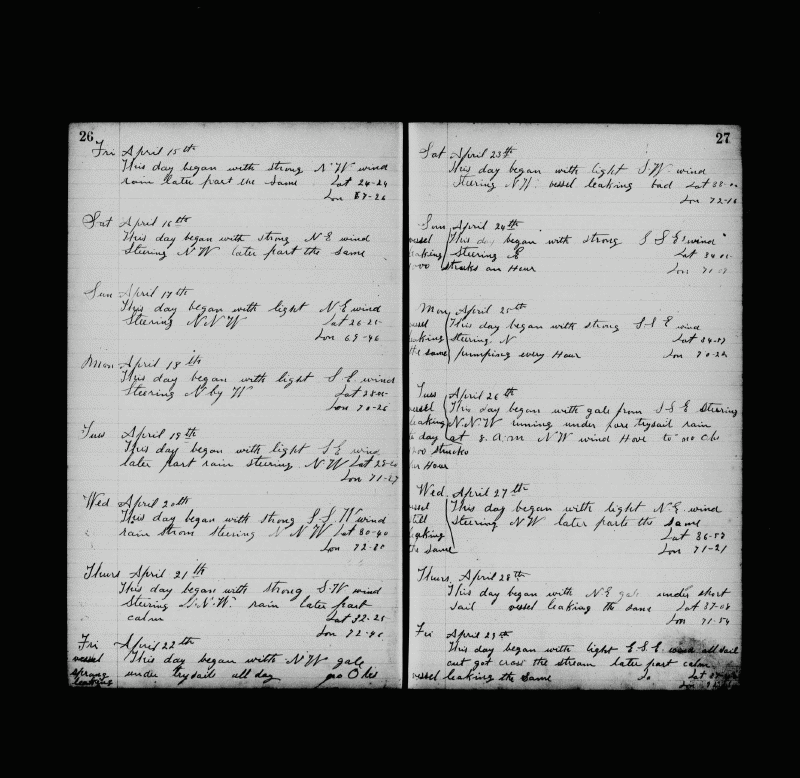 26
Fri April 15th
This day began with strong N.W wind
rain later part the same Lat 24-24
Lon 67-26
Sat April 16th
This day began with strong N E wind
Steering N W later part the same
Sun April 17th
This day began with light N.E wind
Steering N N W Lat 26-25
Lon 69-46
Mon April 18th
This day began with light S E. wind
Steering N by W Lat 28
Lon 70-26
Tues April 19th
This day began with light S E wind
later part rain steering N.W Lat 28
Lon 71-27
Wed April 20th
This day began with strong S.S.W wind
rain strom steering N N W Lat 30-40
Lon 72-30
Thurs April 21th
This day began with strong S.W wind
Steering N.W. rain later part
calm Lat 32-25
Lon 72-40
Fri April 22th
vessel This day began with N W gale
sprang under trysails all day no Obs
leaking
27
Sat April 23th
This day began with light S W. wind
Steering N W. vessel leaking bad Lat 33
Lon 72-16
Sun April 24th
vessel This day began with strong S S E wind
leaking Steering Lat 34
strucks an Hour Lon 71
Mon April 25th
This day began with strong S-S E wind
leaking steering. N Lat 34-57
the same pumping every Hour Lon 70-24
Tues April 26th
vessel This day began with gale from S S E Steering
leaking N.N.W under fore trysail rain
day at 8. a.m N W wind Hove to no Obs
strucks
an Hour
Wed April 27th
vessel This day began with light N.E. wind
still Steering N W later parte the same
leaking Lat 36-57
the same Lon 71-21
Thurs April 28th
This day began with N E gale under short
Sail vessel leaking the same Lat 37-08
Lon 71-54
Fri April 29th
This day began with light E S.E. wind all sail
out got cross the stream later part calm
vessel leaking the same Lat
Lon